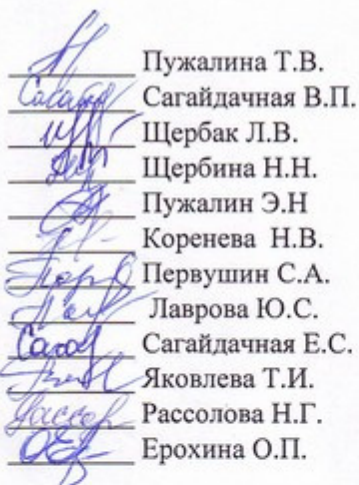 Пужалина Т.В.
Сагайдачная В.П.
Щербак Л.В.
Щербина Н.Н.
Пужалин Э.Н
Коренева Н.В.
Первушин С.А.
Лаврова Ю.С.
Сагайдачная Е.С.
Яковлева Т.И.
Рассолова Н.Г.
Ерохина О.П.